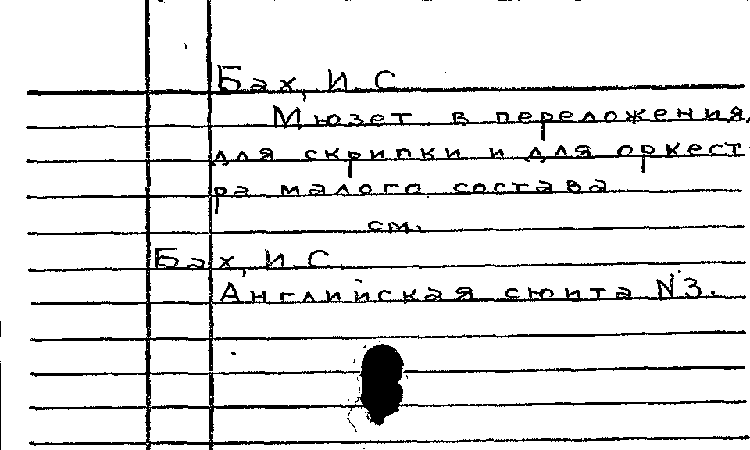 Бах, И. С.
Мюзет в переложения,
для скрипки и для оркест
ра малого состава
см.
Бах, И. С.
Английская сюита N3.